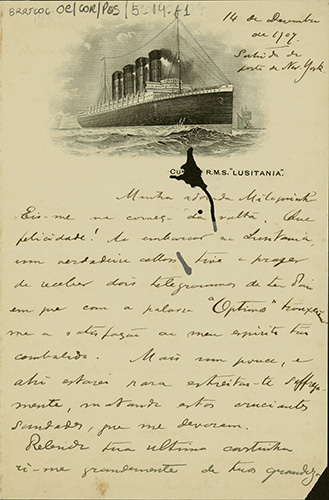 BRRJCOC OC/COR/PES/5.14.f1
14 de Dezembro
de 1907
Sahida do
porto de New-York
R.M.S. "LUSITANIA".
Minha adorada
Eis-me no começo da volta. Que
felicidade! Ao embarcar no Lusitania,
um verdadeiro tive o prazer
de receber dois telegrammas de teu Pai
em que com a palavra "Optimo" trouxeram
me a satisfação ao meu espirito tão
combalido. Mais um pouco, e
ahi estarei para estreitar-te
mente, matando estas cruciantes
saudades, que me devoram.
Relendo tua ultima cartinha
ri-me grandemente de